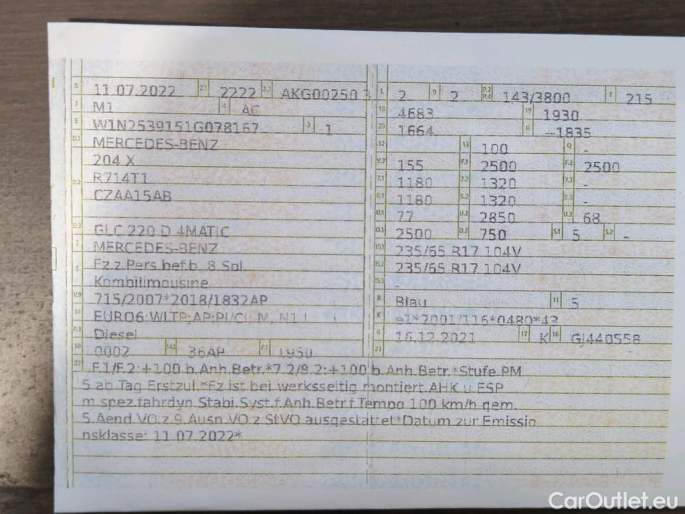 11.07.2022 2222 AKG00250 3
M1 AC
W1N2539151G078167 1
MERCEDES-BENZ
204 X
R714T1
CZAA15AB
GLC 220 D 4MATIC
MERCEDES-BENZ
Fz.z.Pers.bef.b. 8 Spl.
Kombilimousine
715/2007*2018/1832AP
EURO6 WLTP;AP;PI/CI M, N1 I
Diesel
0002 36AP 1950
2 2 143/3800 215
4683 1930
1664 -1835
100 -
155 2500 2500
1180 1320 -
1180 1320 -
77 2850 68
2500 750 5 -
235/65 R17 104V
235/65 R17 104V
-
Blau 5
e1*2001/116*0480*43
16.12.2021 K GJ440558
F.1/F.2:+100 b.Anh.Betr.*7.2/8.2:+100 b.Anh.Betr.*Stufe PM
5 ab Tag Erstzul.*Fz ist bei werksseitig montiert.AHK u.ESP
m.spez.fahrdyn.Stabi.Syst.f.Anh.Betr.f.Tempo 100 km/h gem.
5.Aend.VO.z.9.Ausn.VO.z.StVO ausgestattet*Datum zur Emissio
nsklasse: 11.07.2022*
CarOutlet.eu